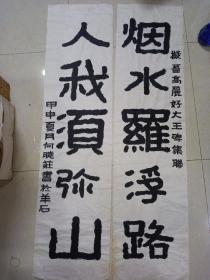 烟水羅浮路
擬晋高麗好大王碑集聯
人我須弥山
甲申夏月何曉莊書於羊石